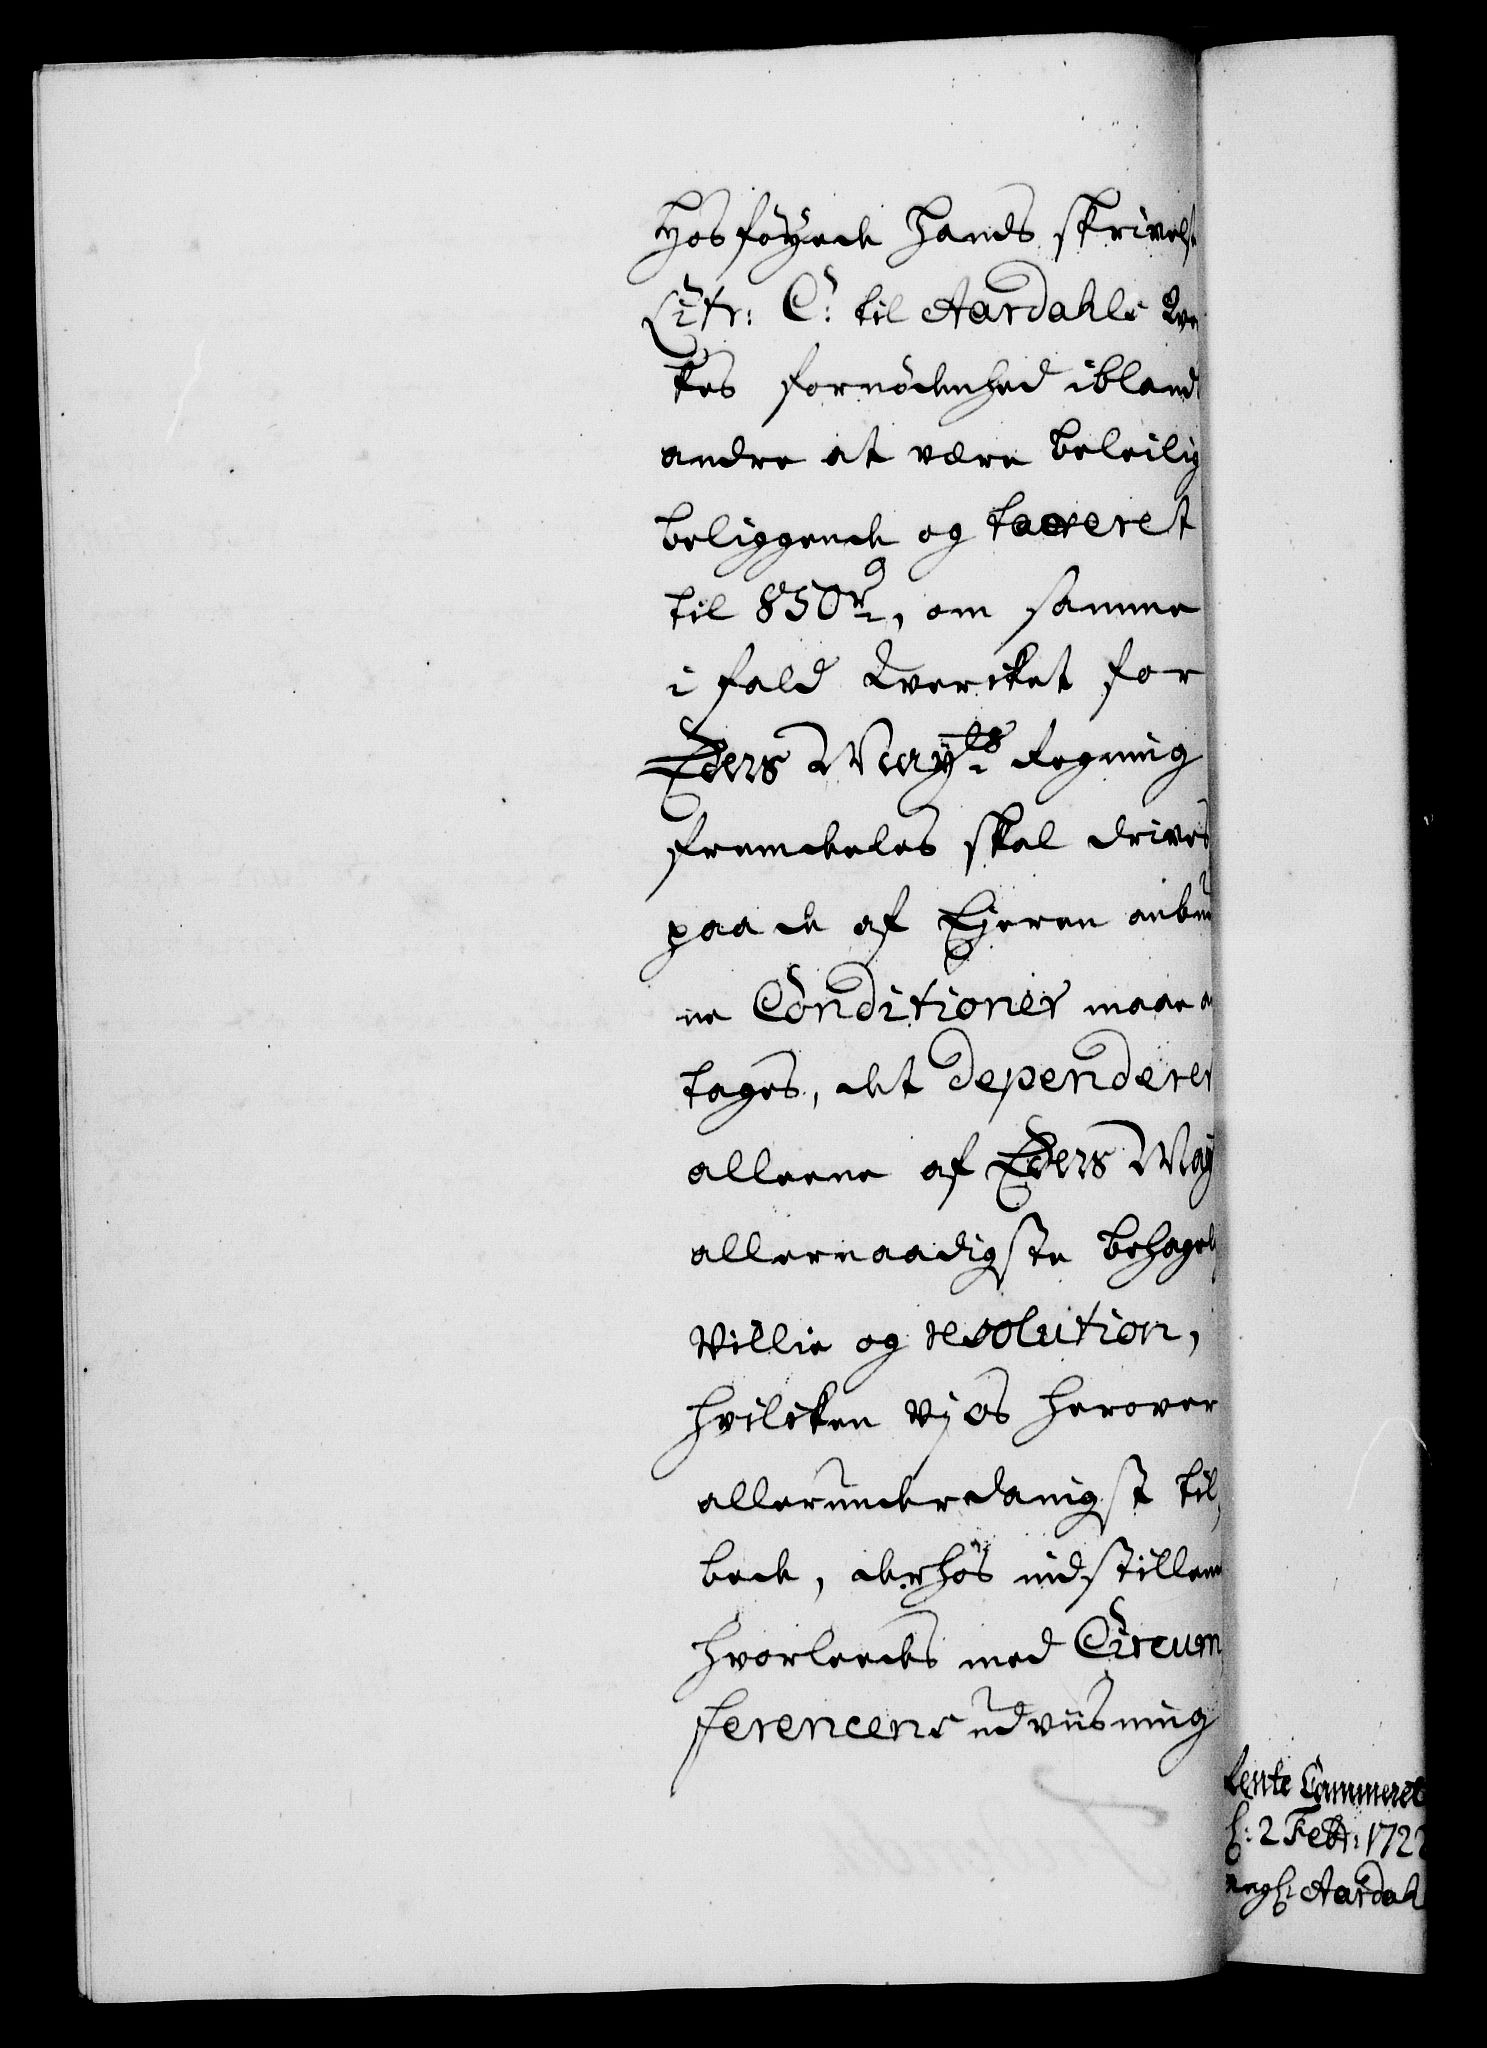 Hosföyede hands skrivels
Litr: C: til Aardahls Qver
kes fornödenhed iblandt
andre at være beleilig
beliggende og taxeret
til 850 rd, om samme
i fald Qvercket for
Eders Mayts Regning
fremdeeles skal drives
paa de af Ejeren anbud
ne Conditioner maae an
tages, det dependerer
alleene af Eders May
allernaadigste behagel
Villie og resolution,
hvilcken vj os herover
allerunderdanigst til,
bede, derhos indstillende
hvorleedes med Circum,
ferencens udviisning
Rente Cammeret
d: 2 Febr: 1722
ang: Aardahl